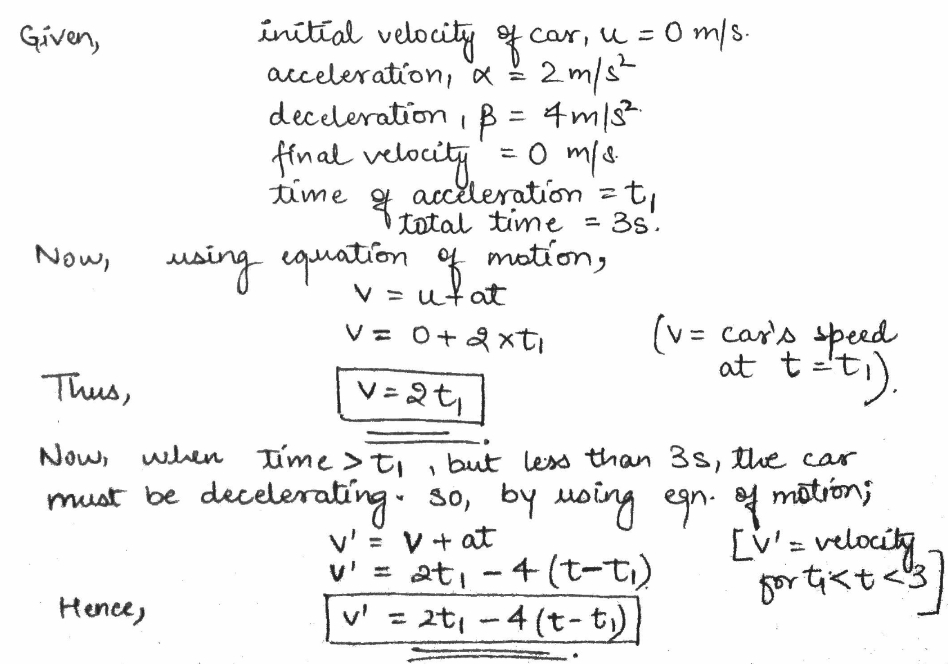 Given, initial velocity of car, u = 0 m/s.
acceleration, α = 2 m/s²
deceleration, β = 4 m/s²
final velocity = 0 m/s
time of acceleration = t₁
total time = 3s.
Now, using equation of motion,
v = u + at
v = 0 + 2 × t₁ (v = car's speed
at t = t₁).
Thus, v = 2t₁
Now, when time > t₁, but less than 3s, the car
must be decelerating. so, by using eqn. of motion;
v' = v + at [v' = velocity
v' = 2t₁ - 4 (t-t₁) for t₁<t<3]
Hence, v' = 2t₁ - 4 (t-t₁)